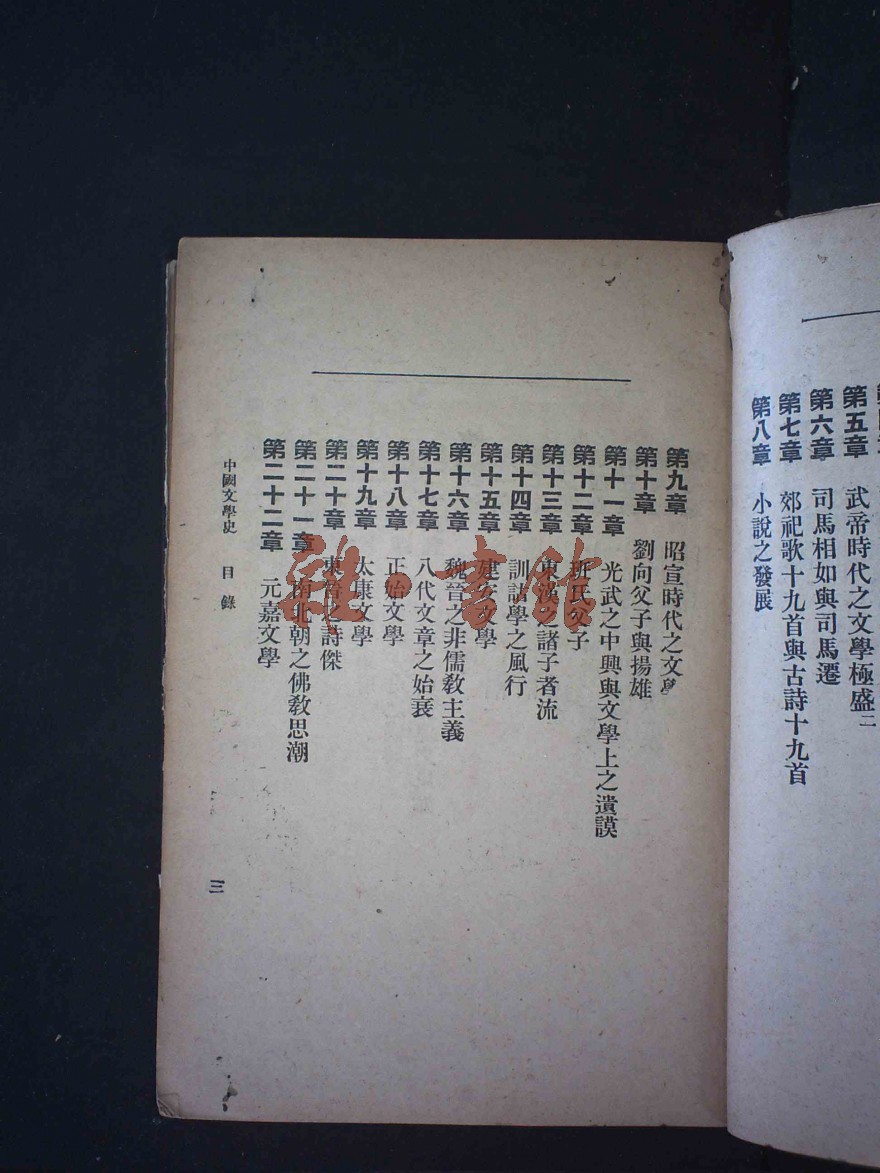 第五章　武帝時代之文學極盛二
第六章　司馬相如與司馬遷
第七章　郊祀歌十九首與古詩十九首
第八章　小說之發展
第九章　昭宣時代之文學
第十章　劉向父子與揚雄
第十一章　光武之中興與文學上之遺謨
第十二章　班氏父子
第十三章　東漢之諸子者流
第十四章　訓詁學之風行
第十五章　建安文學
第十六章　魏晉之非儒教主義
第十七章　八代文章之始衰
第十八章　正始文學
第十九章　太康文學
第二十章　東晉之詩傑
第二十一章　南北朝之佛教思潮
第二十二章　元嘉文學
中國文學史　目錄
三
雜·書館